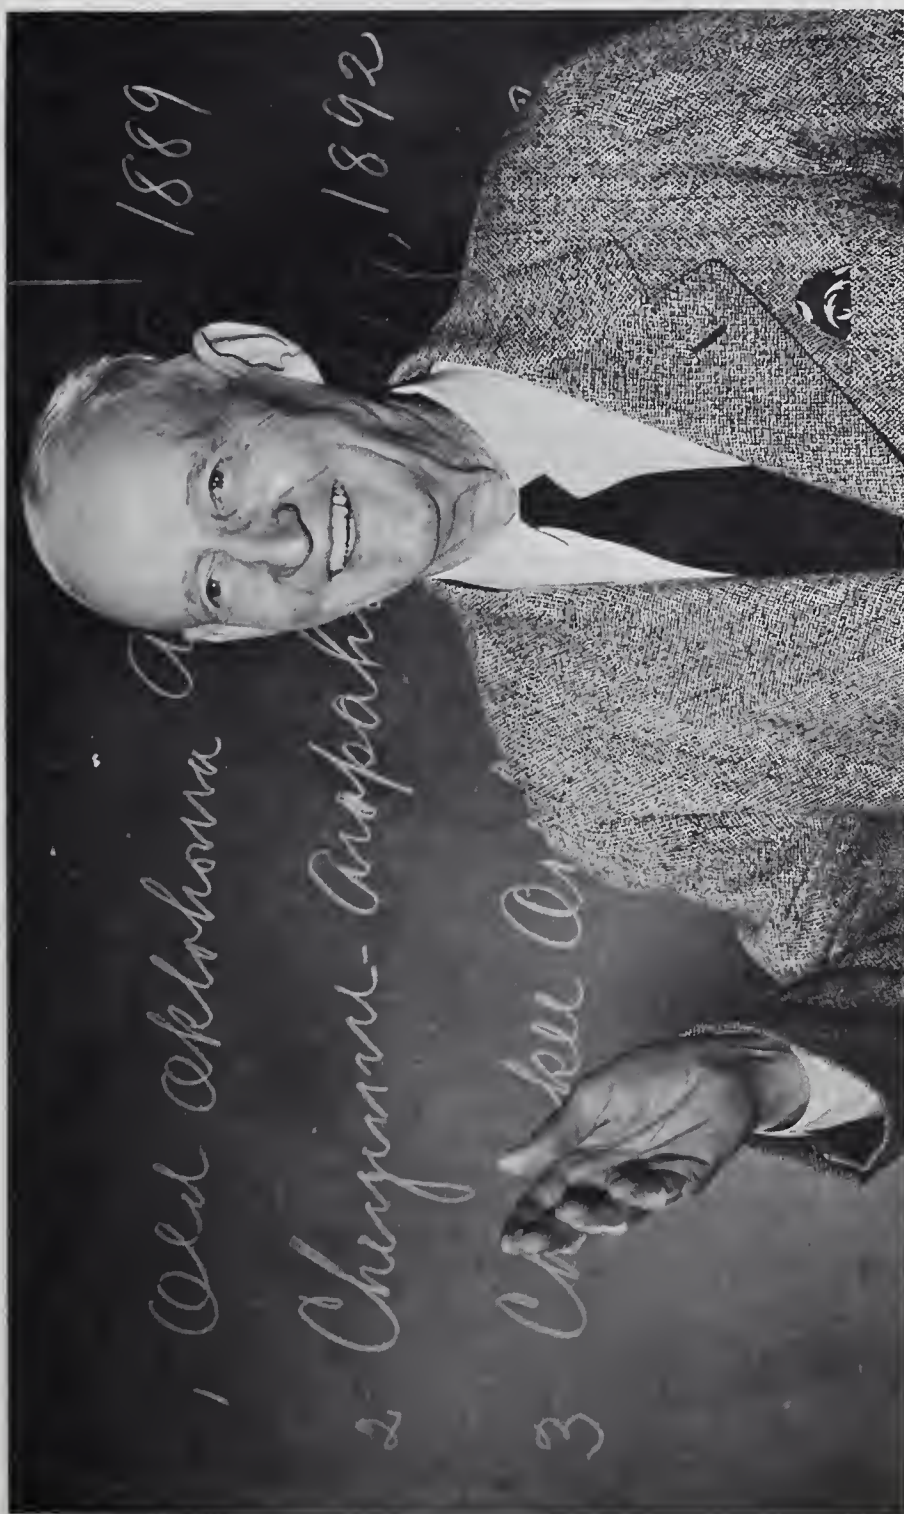 1 Old Oklahoma 1889
2 Cheyenne - Arapah 1892
3 Ch kee